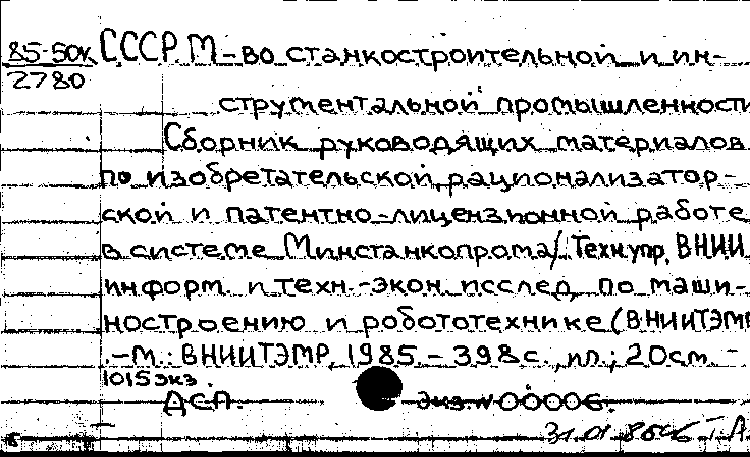 85-50к СССР. М-во станкостроительной и ин-
2780
струментальной промышленности
Сборник руководящих материалов
по изобретательской, рационализатор-
ской и патентно-лицензионной работе
в системе Минстанкопрома / Техн. упр, ВНИИ
информ. и техн.-экон. исслед. по маши-
ностроению и робототехнике (ВНИИТЭМР
.-М.: ВНИИТЭМР, 1985. - 398 с., ил.; 20см. -
1015 экз.
ДСП. Экз. N 00006.
31.01